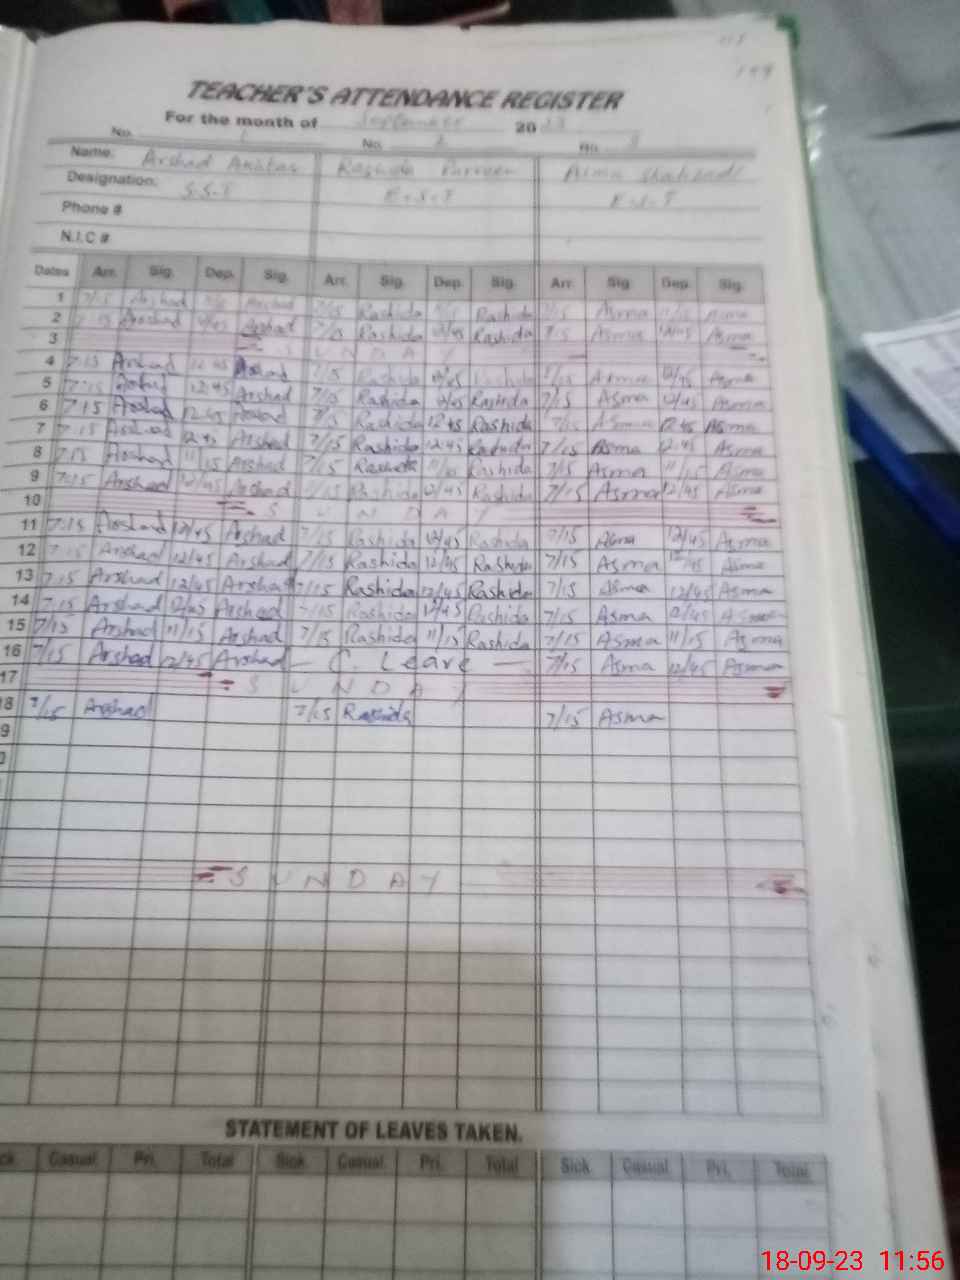 TEACHER'S ATTENDANCE REGISTER
For the month of September 2023
No. 1 No. 2 No. 3
Name: Arshad Rashida Parveen Asma
Designation: S.S.T E.S.T E.S.T
Phone #
N.I.C #
Dates Arr. Sig. Dep. Sig. Arr. Sig. Dep. Sig. Arr. Sig. Dep. Sig.
1 7/15 Arshad Arshad 7/15 Rashida Rashida 7/15 Asma 11/15 Asma
2 7:15 Arshad 12/45 Arshad 7/15 Rashida 12/45 Rashida 7/15 Asma 12/45 Asma
3 SUNDAY
4 7:15 Arshad 12:45 Arshad 7/15 Rashida 12/45 Rashida 7/15 Asma 12/45 Asma
5 7:15 Arshad 12:45 Arshad 7/15 Rashida 12/45 Rashida 7/15 Asma 12/45 Asma
6 7:15 Arshad 12:45 Arshad 7/15 Rashida 12:45 Rashida 7/15 Asma 12:45 Asma
7 7:15 Arshad 12:45 Arshad 7/15 Rashida 12:45 Rashida 7/15 Asma 12:45 Asma
8 7:15 Arshad 11/15 Arshad 7/15 Rashida 11/15 Rashida 7/15 Asma 11/15 Asma
9 7:15 Arshad 12/45 Arshad 7/15 Rashida 12/45 Rashida 7/15 Asma 12/45 Asma
10 SUNDAY
11 7:15 Arshad 12/45 Arshad 7/15 Rashida 12/45 Rashida 7/15 Asma 12/45 Asma
12 7:15 Arshad 12/45 Arshad 7/15 Rashida 12/45 Rashida 7/15 Asma 12/45 Asma
13 7:15 Arshad 12/45 Arshad 7/15 Rashida 12/45 Rashida 7/15 Asma 12/45 Asma
14 7:15 Arshad 12/45 Arshad 7/15 Rashida 12/45 Rashida 7/15 Asma 12/45 Asma
15 7/15 Arshad 11/15 Arshad 7/15 Rashida 11/15 Rashida 7/15 Asma 11/15 Asma
16 7/15 Arshad 12/45 Arshad - C. Leave - 7/15 Asma 12/45 Asma
17 SUNDAY
18 7/15 Arshad 7/15 Rashida 7/15 Asma
9
0
SUNDAY
STATEMENT OF LEAVES TAKEN.
Casual Pri. Total Sick. Casual. Pri. Total Sick. Casual Pri. Total
18-09-23 11:56